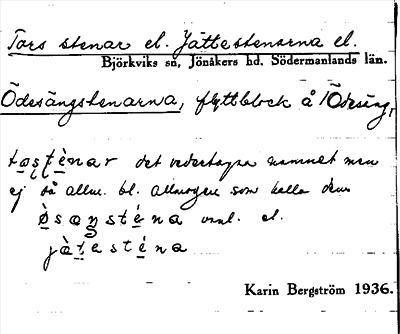 Tors stenar el. Jättestenarna el.
Björkviks sn, Jönåkers hd. Södermanlands län.
Ödesängstenarna, flyttblock å Ödesäng,
tọsṭè̱nar det vedertagna namnet men
ej så allm. bl. allmogen som kalla dem
ø̱̀saŋsté̱na vanl. el.
jà̱ṭesté̱na
Karin Bergström 1936.